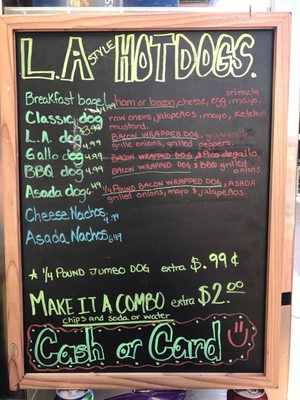 L.A STYLE HOTDOGS.
sriracha
Breakfast bagel ham or bacon, cheese, egg, mayo.
Classic dog raw onions, jalapeños, mayo, ketchup
3.99 mustard.
L.A. dog 4.99 BACON WRAPPED DOG, guacamole
grille onions, grilled peppers.
Gallo dog 4.99 BACON WRAPPED DOG & Pico de gallo
BBQ dog 4.99 BACON WRAPPED DOG & BBQ grilled
onions.
Asada dog 6.49 1/4 POUND BACON WRAPPED DOG, ASADA
grilled onions, mayo & jalapeños.
Cheese Nachos 4.99
Asada Nachos 6.99
★ 1/4 POUND JUMBO DOG extra $.99¢
MAKE IT A COMBO extra $2.00
chips and soda or water
Cash or Card